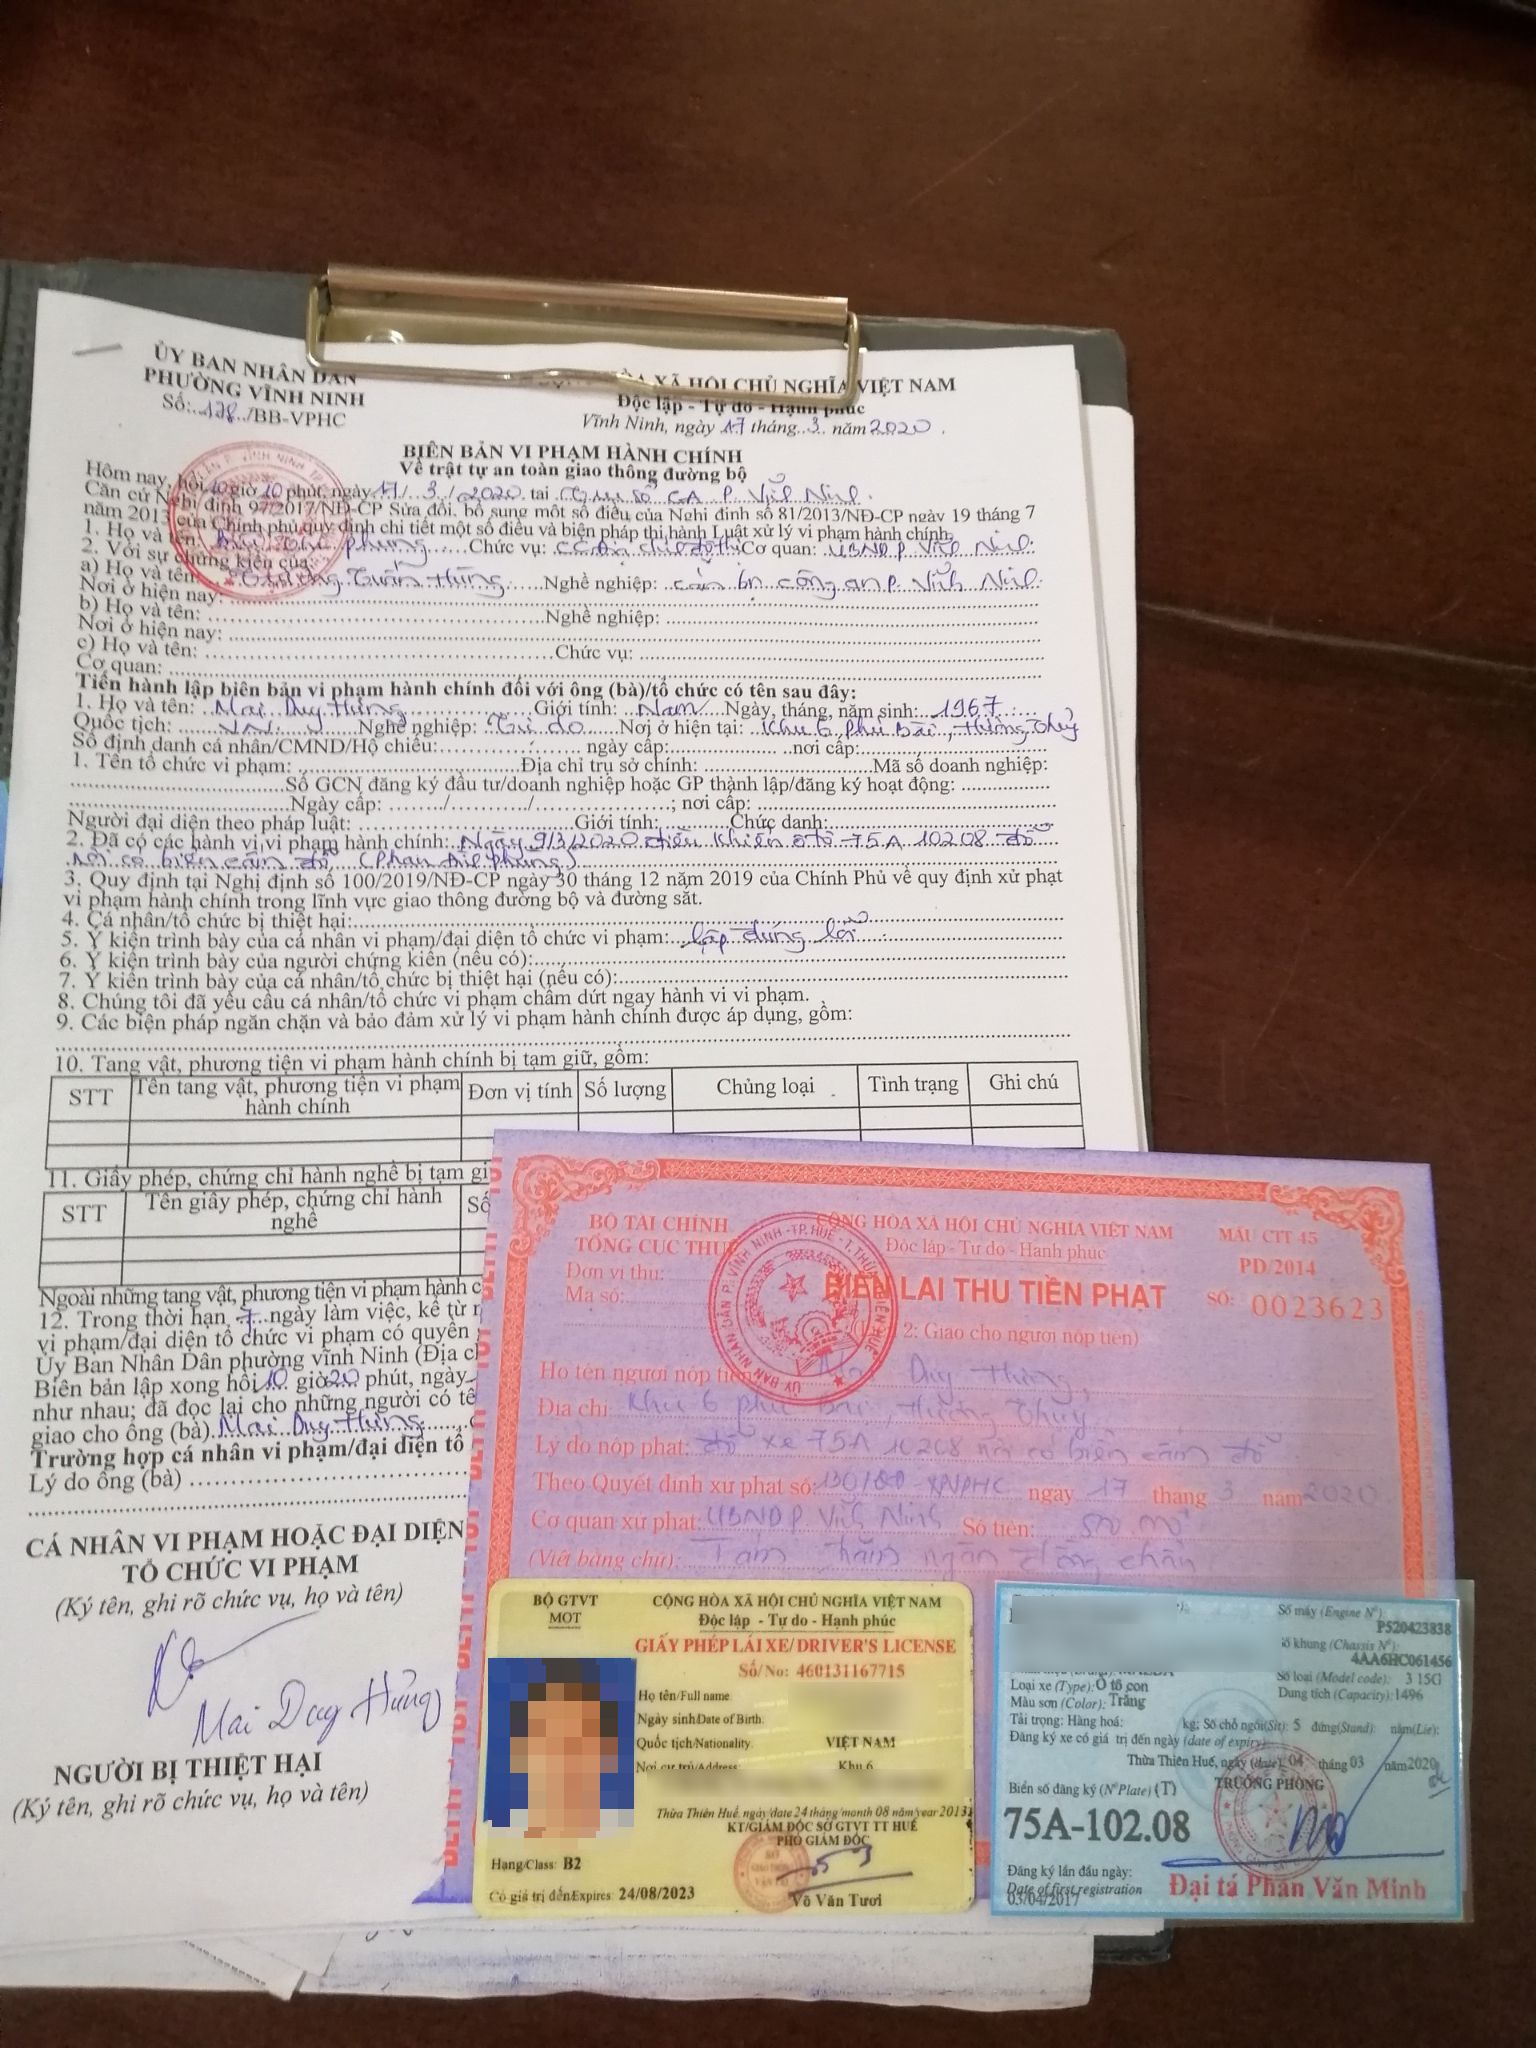 ỦY BAN NHÂN DÂN
PHƯỜNG VĨNH NINH
Số: 178 /BB-VPHC
HÒA XÃ HỘI CHỦ NGHĨA VIỆT NAM
Độc lập - Tự do - Hạnh phúc
Vĩnh Ninh, ngày 17 tháng 3 năm 2020.
BIÊN BẢN VI PHẠM HÀNH CHÍNH
Về trật tự an toàn giao thông đường bộ
Hôm nay, hồi 10 giờ 10 phút, ngày 17/ 3 /2020 tại Trụ sở CA P. Vĩnh Ninh
Căn cứ Nghị định 97/2017/NĐ-CP Sửa đổi, bổ sung một số điều của Nghị định số 81/2013/NĐ-CP ngày 19 tháng 7
năm 2013 của Chính phủ quy định chi tiết một số điều và biện pháp thi hành Luật xử lý vi phạm hành chính.
1. Họ và tên: Phụng Chức vụ: Cơ quan: UBND P. Vĩnh Ninh
2. Với sự chứng kiến của:
a) Họ và tên: Tuấn Hùng Nghề nghiệp: cán bộ công an P. Vĩnh Ninh
Nơi ở hiện nay:
b) Họ và tên: Nghề nghiệp:
Nơi ở hiện nay:
c) Họ và tên: Chức vụ:
Cơ quan:
Tiến hành lập biên bản vi phạm hành chính đối với ông (bà)/tổ chức có tên sau đây:
1. Họ và tên: Mai Duy Hùng Giới tính: Nam Ngày, tháng, năm sinh: 1967
Quốc tịch: VN Nghề nghiệp: Tự do Nơi ở hiện tại: Khu 6 Phú Bài, Hương Thủy
Số định danh cá nhân/CMND/Hộ chiếu: ngày cấp: nơi cấp:
1. Tên tổ chức vi phạm: Địa chỉ trụ sở chính: Mã số doanh nghiệp:
Số GCN đăng ký đầu tư/doanh nghiệp hoặc GP thành lập/đăng ký hoạt động:
Ngày cấp: / / ; nơi cấp:
Người đại diện theo pháp luật: Giới tính: Chức danh:
2. Đã có các hành vi vi phạm hành chính: Ngày 9/3/2020 điều khiển ô tô 75A 10208 đỗ
nơi có biển cấm đỗ (Phan Đình Phùng)
3. Quy định tại Nghị định số 100/2019/NĐ-CP ngày 30 tháng 12 năm 2019 của Chính Phủ về quy định xử phạt
vi phạm hành chính trong lĩnh vực giao thông đường bộ và đường sắt.
4. Cá nhân/tổ chức bị thiệt hại:
5. Ý kiến trình bày của cá nhân vi phạm/đại diện tổ chức vi phạm: lập đúng lỗi
6. Ý kiến trình bày của người chứng kiến (nếu có):
7. Ý kiến trình bày của cá nhân/tổ chức bị thiệt hại (nếu có):
8. Chúng tôi đã yêu cầu cá nhân/tổ chức vi phạm chấm dứt ngay hành vi vi phạm.
9. Các biện pháp ngăn chặn và bảo đảm xử lý vi phạm hành chính được áp dụng, gồm:
10. Tang vật, phương tiện vi phạm hành chính bị tạm giữ, gồm:
STT Tên tang vật, phương tiện vi phạm hành chính Đơn vị tính Số lượng Chủng loại Tình trạng Ghi chú
11. Giấy phép, chứng chỉ hành nghề bị tạm
STT Tên giấy phép, chứng chỉ hành nghề Số
Ngoài những tang vật, phương tiện vi phạm hành
12. Trong thời hạn 7 ngày làm việc, kể từ
vi phạm/đại diện tổ chức vi phạm có quyền
Ủy Ban Nhân Dân phường vĩnh Ninh (Địa
Biên bản lập xong hồi 10 giờ 20 phút, ngày
như nhau; đã đọc lại cho những người có
giao cho ông (bà) Mai Duy Hùng
Trường hợp cá nhân vi phạm/đại diện tổ
Lý do ông (bà)
CÁ NHÂN VI PHẠM HOẶC ĐẠI DIỆN
TỔ CHỨC VI PHẠM
(Ký tên, ghi rõ chức vụ, họ và tên)
Mai Duy Hùng
NGƯỜI BỊ THIỆT HẠI
(Ký tên, ghi rõ chức vụ, họ và tên)
BỘ TÀI CHÍNH
TỔNG CỤC THUẾ
Đơn vị thu:
Mã số:
CỘNG HÒA XÃ HỘI CHỦ NGHĨA VIỆT NAM
Độc lập - Tự do - Hạnh phúc
BIÊN LAI THU TIỀN PHẠT
2: Giao cho người nộp tiền)
MẪU CTT 45
PD/2014
SỐ: 0023623
Họ tên người nộp tiền: Duy Hùng
Địa chỉ: Khu 6 phú bài, Hương Thủy
Lý do nộp phạt: đỗ xe 75A 10208 nơi có biển cấm đỗ
Theo Quyết định xử phạt số: ngày 17 tháng 3 năm 2020
Cơ quan xử phạt: UBND P. Vĩnh Ninh Số tiền:
(Viết bằng chữ): Tám trăm ngàn đồng chẵn
BỘ GTVT
MOT
CỘNG HÒA XÃ HỘI CHỦ NGHĨA VIỆT NAM
Độc lập - Tự do - Hạnh phúc
GIẤY PHÉP LÁI XE/ DRIVER'S LICENSE
Số/No: 460131167715
Họ tên/Full name:
Ngày sinh/Date of Birth:
Quốc tịch/Nationality: VIỆT NAM
Nơi cư trú/Address: Khu 6
Thừa Thiên Huế, ngày/date 24 tháng/month 08 năm/year 2013
KT/GIÁM ĐỐC SỞ GTVT TT HUẾ
PHÓ GIÁM ĐỐC
Hạng/Class: B2
Có giá trị đến/Expires: 24/08/2023
Võ Văn Tươi
Số máy (Engine N°):
P520423838
Số khung (Chassis N°):
4AA6HC061456
Loại xe (Type): Ô tô con Số loại (Model code): 3 15G
Màu sơn (Color): Trắng Dung tích (Capacity): 1496
Tải trọng: Hàng hoá: kg; Số chỗ ngồi(Sit): 5 đứng(Stand): nằm(Lie):
Đăng ký xe có giá trị đến ngày (date of expiry)
Thừa Thiên Huế, ngày (date) 04 tháng 03 năm 2020
Biển số đăng ký (N° Plate) (T) TRƯỞNG PHÒNG
75A-102.08
Đăng ký lần đầu ngày:
Date of first registration
03/04/2017
Đại tá Phan Văn Minh